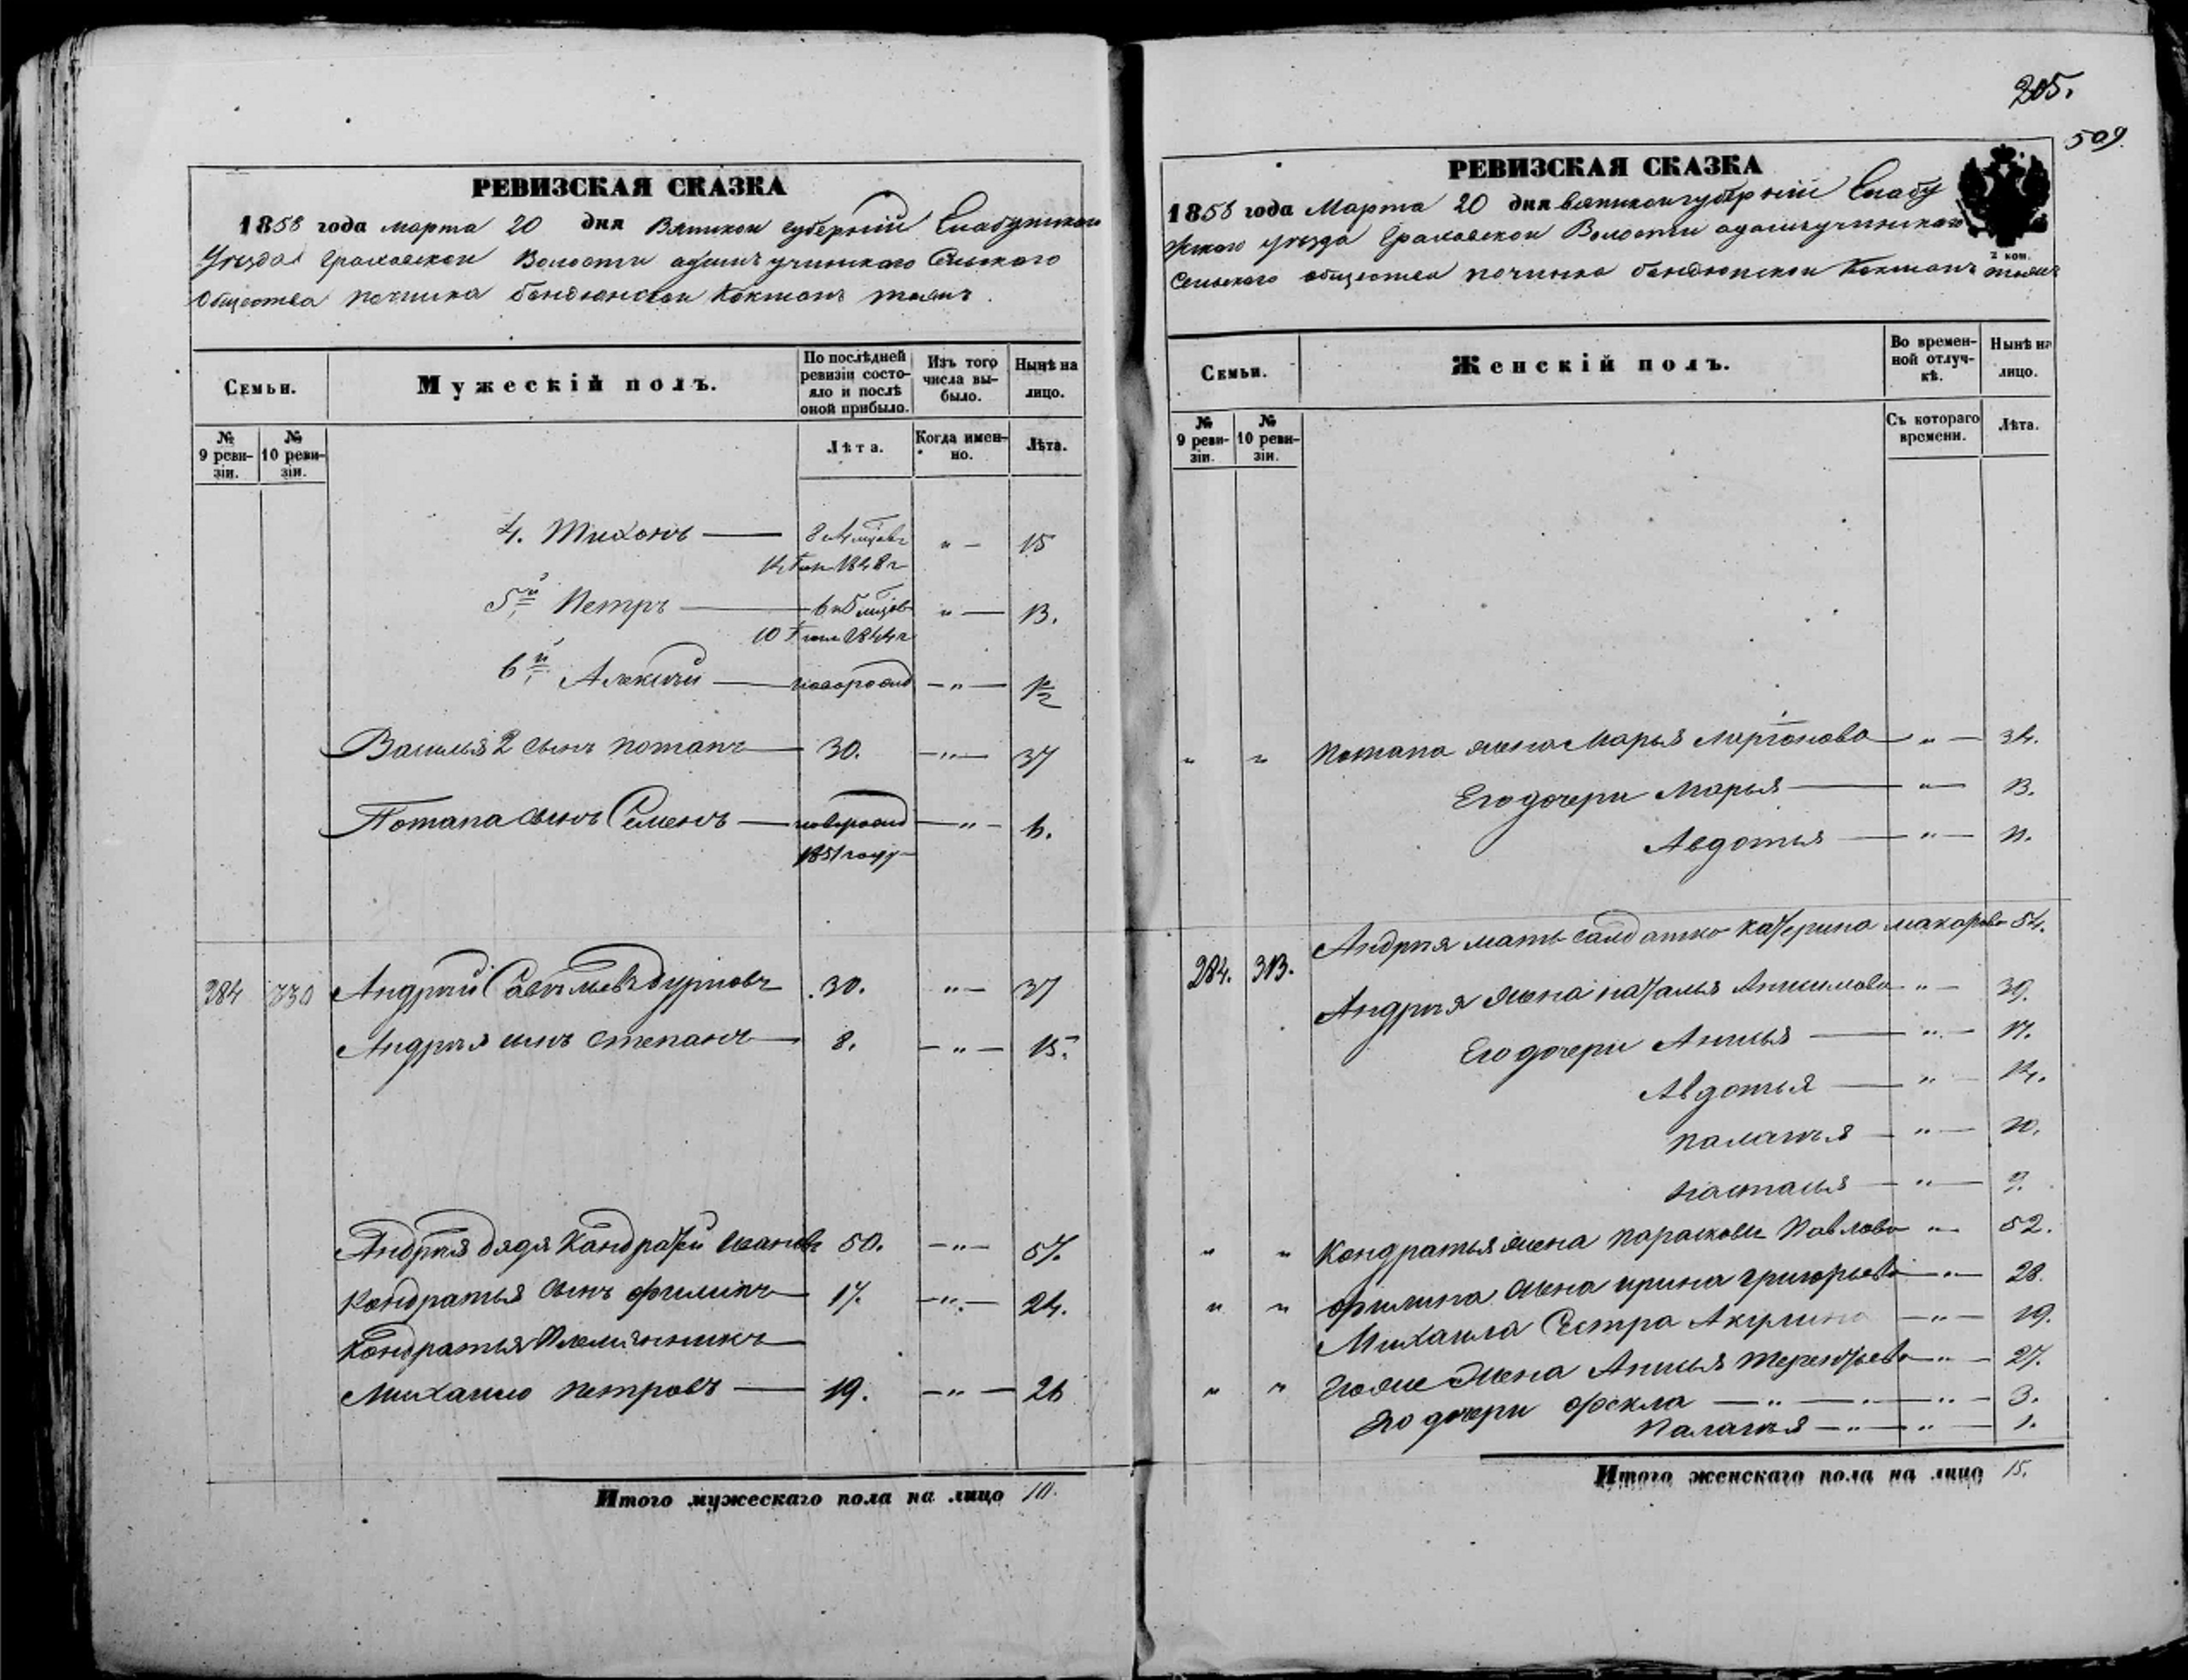 205.
509.
РЕВИЗСКАЯ СКАЗКА
1858 года марта 20 дня Вятской губерніи Елабужского
Уезда Граховской Волости адамъ учинского Сельского
Общества починка бондюжской Кокшанъ
Семьи.
Мужескій полъ.
По послѣдней ревизіи состояло и послѣ оной прибыло.
Изъ того числа выбыло.
Нынѣ на лицо.
№ 9 ревизіи.
№ 10 ревизіи.
Лѣта.
Когда именно.
Лѣта.
4. Тихонъ — 8 " — 15
1848 г
5й Петръ — 6 " — 13.
10 1844 г
6й Алексѣй — новорожд — " — 1/2
Василья 2 сынъ потапъ — 30. — " — 37
Потапа сынъ Семенъ — новорожд — " — 6.
1851 году
284 330 Андрѣй Савельевъ 30. " — 37
Андрѣя сынъ степанъ — 8. — " — 15.
Андрѣя дядя Кандратѣй Ивановъ 50. — " — 57.
Кондратья сынъ филипъ — 17. — " — 24.
Кондратья Племянникъ —
Михаило петровъ — 19. — " — 26
Итого мужескаго пола на лицо 10.
РЕВИЗСКАЯ СКАЗКА
1858 года Марта 20 дня вятской губерніи Елабу
жского уезда Граховской Волости адамъучинского
2 коп.
Сельского общества починка бондюжской Кокшанъ
Семьи.
Женскій полъ.
Во временной отлучкѣ.
Нынѣ на лицо.
№ 9 ревизіи.
№ 10 ревизіи.
Съ котораго времени.
Лѣта.
" " Потапа жена Марья Ларіонова — " — 34.
Его дочери Марья — " — 13.
Авдотья — " — 11.
Андрѣя мать салдатка Катерина макарова 54.
284. 313. Андрѣя жена наталья Анисимова " — 39.
Его дочери Анисья — " — 17.
Авдотья — " — 14.
палагѣя — " — 10.
настасья — " — 9.
" " Кондратья жена парасковья Павлова " — 52.
" " филипа жена ирина григорьева — " — 28.
Михаила Сестра Акулина — " — 19.
" " Его же Жена Анисья Терентьева — " — 27.
Его дочери фекла — " — " — " — 3.
Палагѣя — " — " — 1.
Итого женскаго пола на лицо 15.